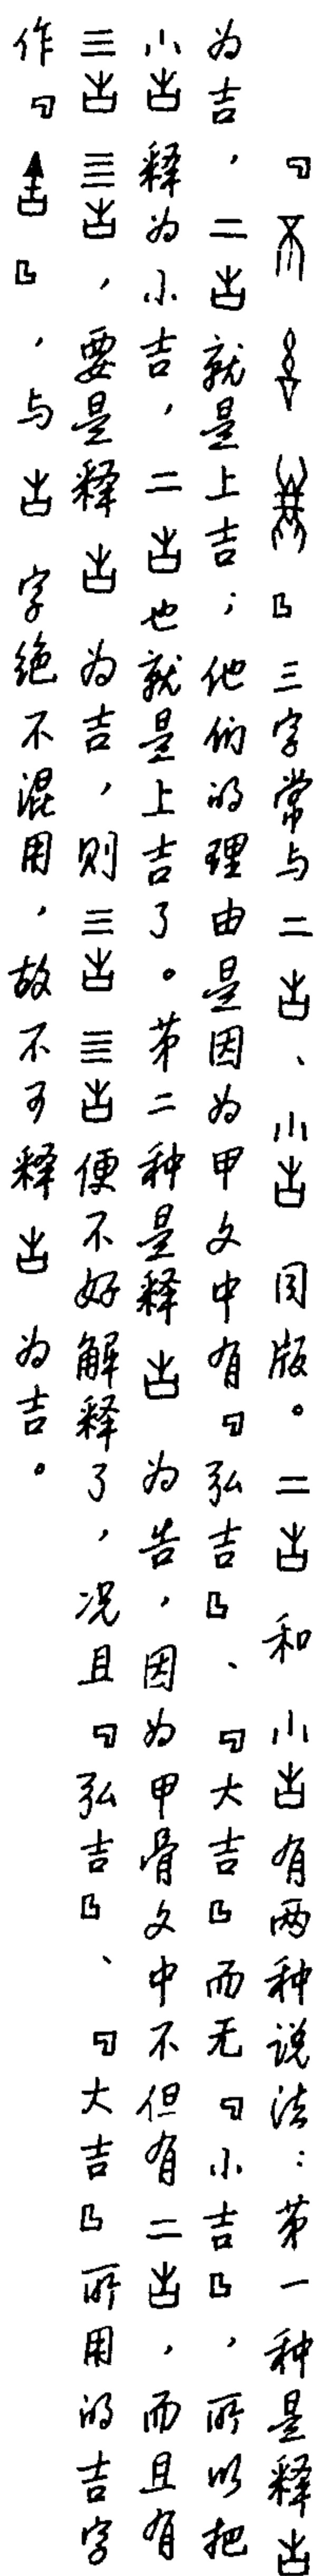 『』三字常与二、小同版。二和小有两种说法：第一种是释
为吉，二就是上吉；他们的理由是因为甲文中有『弘吉』、『大吉』而无『小吉』，所以把
小释为小吉，二也就是上吉了。第二种是释为告，因为甲骨文中不但有二，而且有
三亖，要是释为吉，则三亖便不好解释了，况且『弘吉』、『大吉』所用的吉字
作『』，与字绝不混用，故不可释为吉。